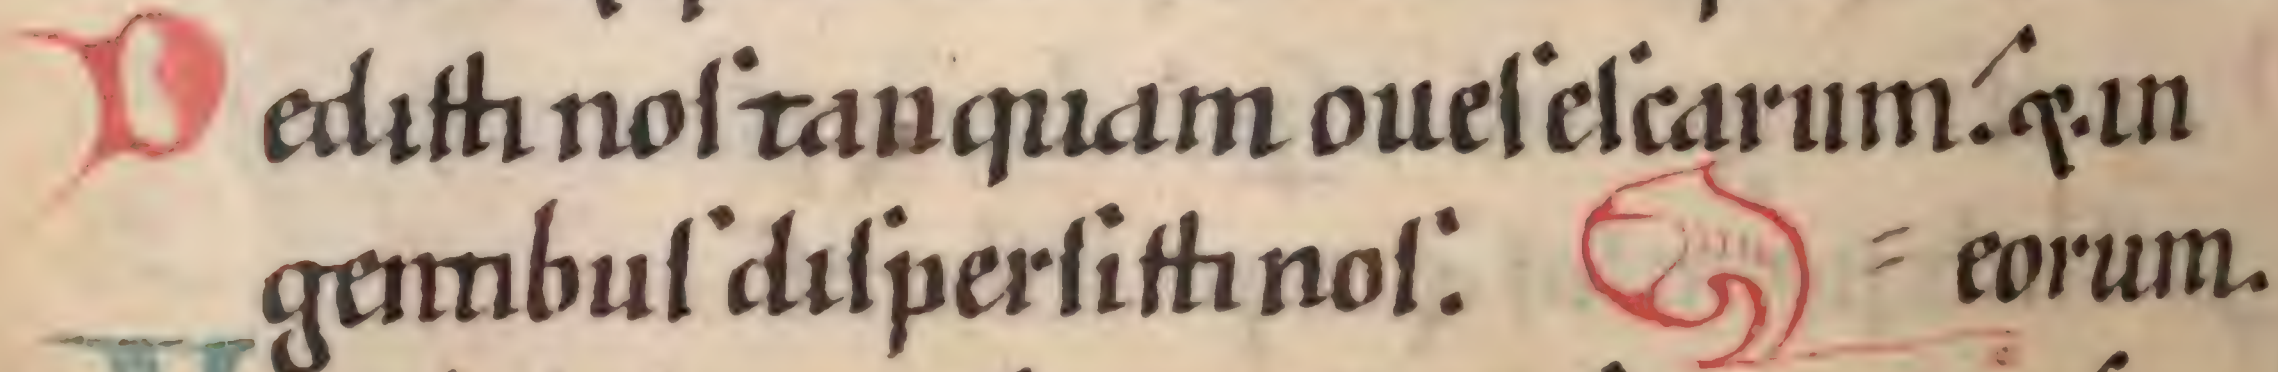 Dediſti noſ tanquam oueſ eſcarum: & in
gentibuſ diſperſiſti noſ: = eorum.